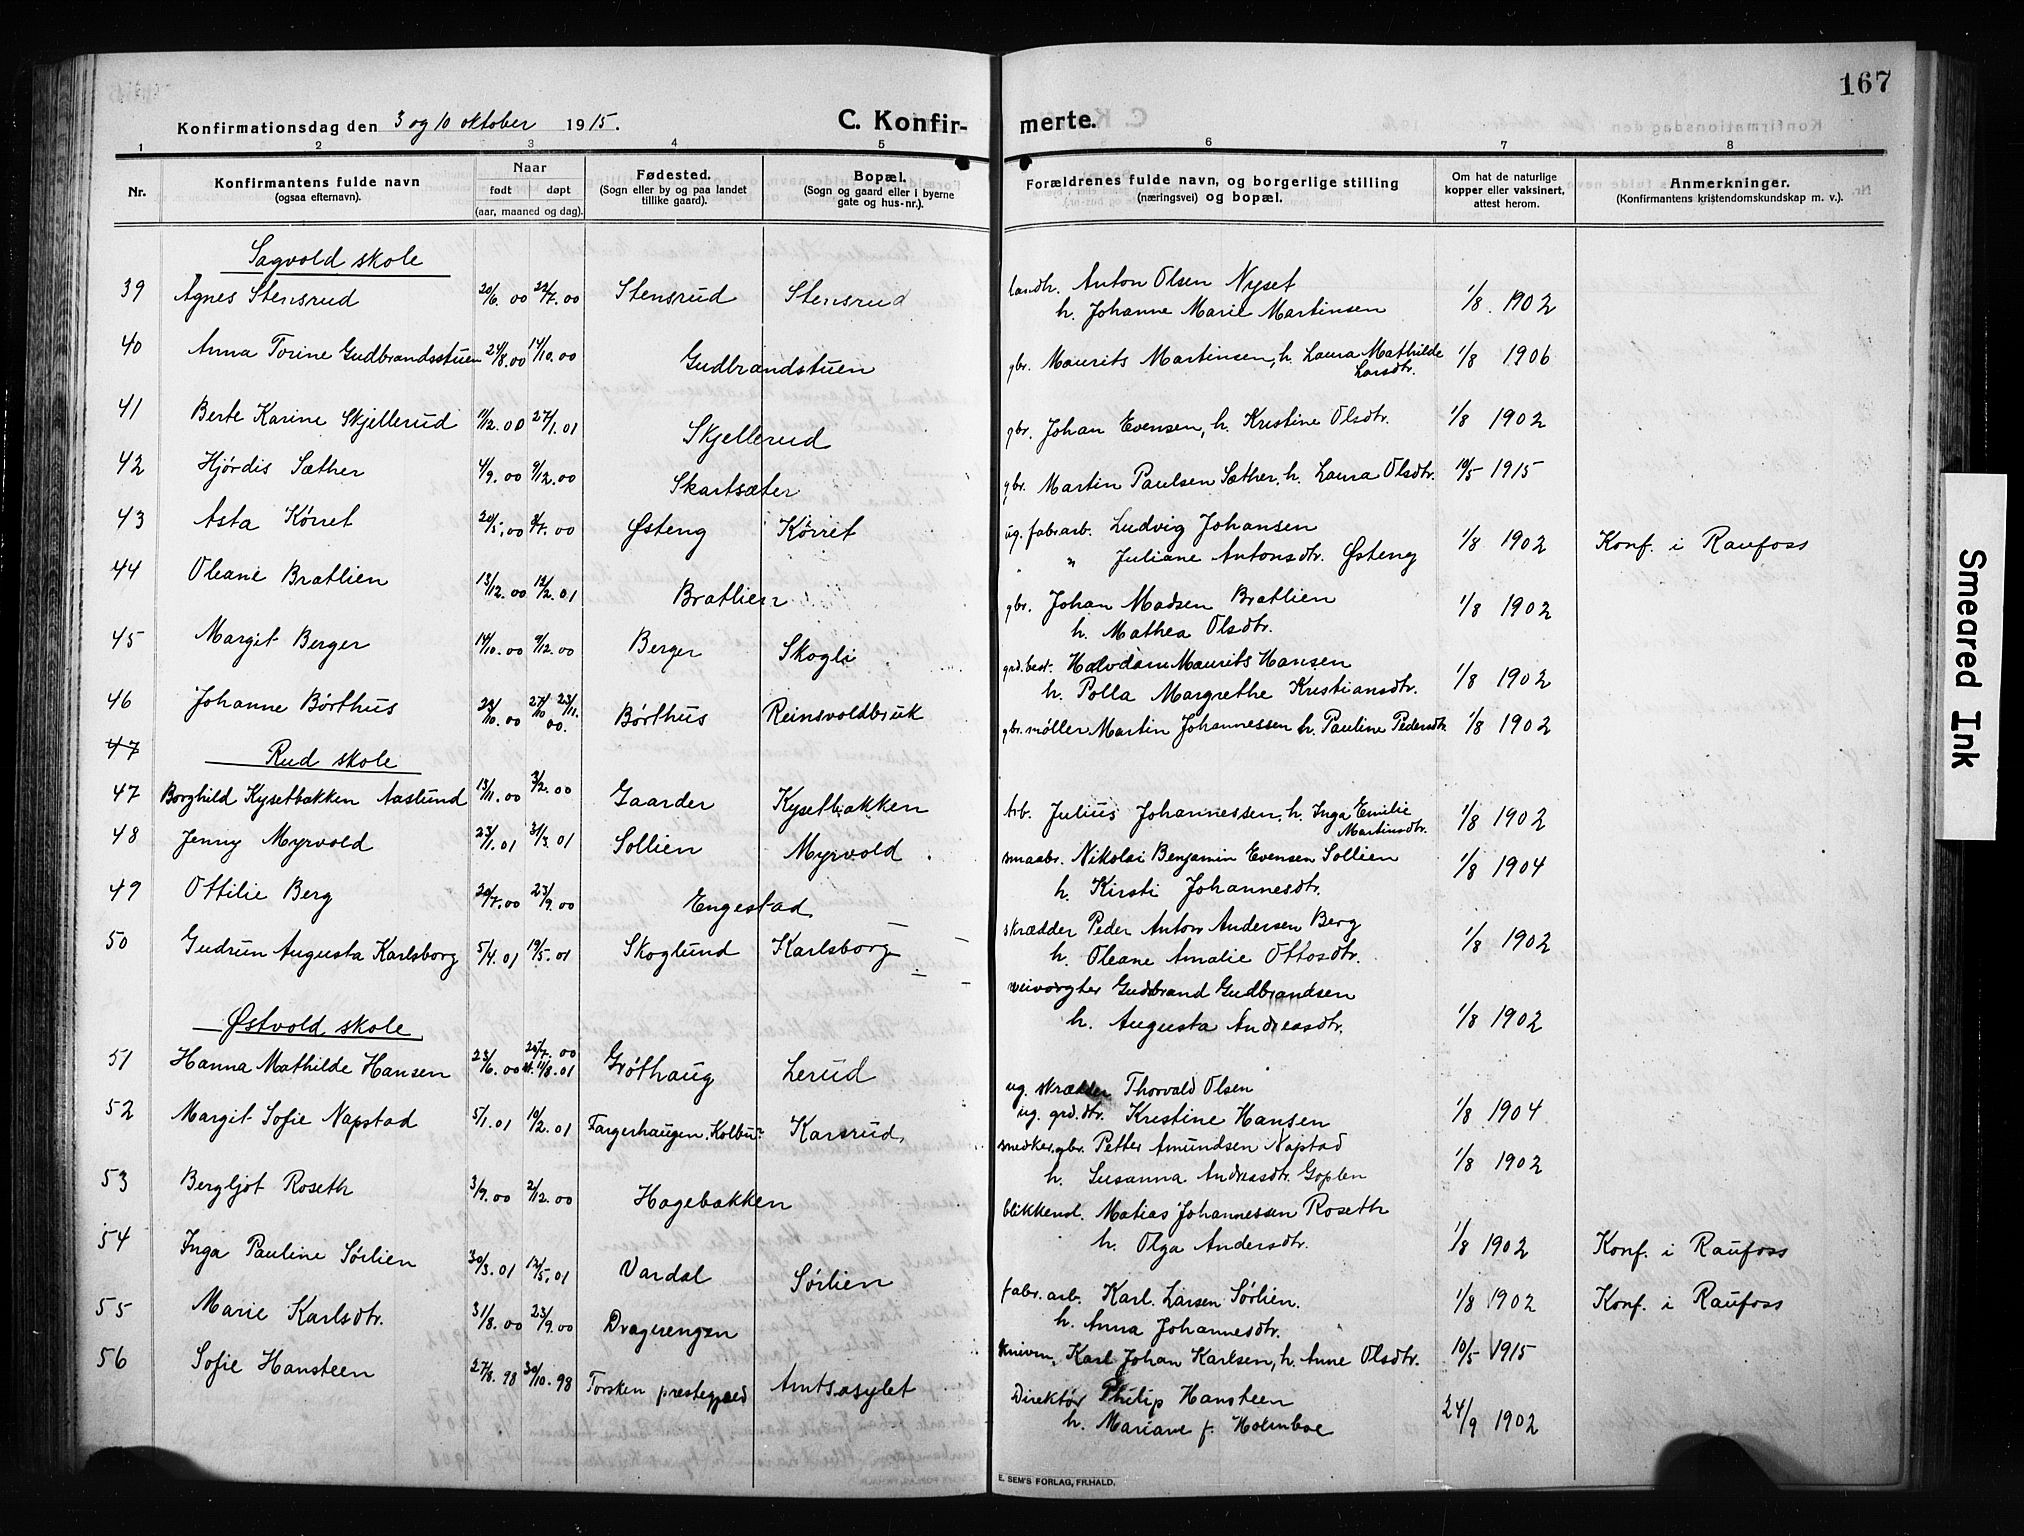 167
Konfirmationsdag den 3 og 10 oktober 1915.
C. Konfir- merte.
1 2 3 4 5 6 7 8
Nr.
Konfirmantens fulde navn
(ogsaa efternavn).
Naar
født døpt
(aar, maaned og dag).
Fødested.
(Sogn eller by og paa landet
tillike gaard).
Bopæl.
(Sogn og gaard eller i byerne
gate og hus-nr.).
Forældrenes fulde navn, og borgerlige stilling
(næringsvei) og bopæl.
Om hat de naturlige
kopper eller vaksinert,
attest herom.
Anmerkninger.
(Konfirmantens kristendomskundskap m. v.).
Sagvold skole
39 Agnes Stensrud 20/6. 00 22/7. 00 Stensrud Stensrud landh. Anton Olsen Nyset
h. Johanne Marie Martinsen 1/8. 1902
40 Anna Torine Gudbrandsstuen 24/8.00 14/10. 00 Gudbrandstuen gbr. Maurits Martinsen, h. Laura Mathilde
Larsdtr. 1/8 1906
41 Berte Karine Skjellerud 11/2. 00 27/1. 01 Skjellerud gbr. Johan Evensen, h. Kristine Olsdtr. 1/8 1902
42 Hjørdis Sæther 4/9. 00 9/12. 00 Skartsæter gbr. Martin Paulsen Sæther, h. Laura Olsdtr. 10/5 1915
43 Asta Kørret 20/5. 00 8/7. 00 Østeng Kørret ug. fabr.arb. Ludvig Johansen
" " Juliane Antonsdtr. Østeng 1/8 1902 Konf. i Raufoss
44 Oleane Bratlien 13/12. 00 12/2. 01 Bratlien gbr. Johan Madsen Bratlien
h. Mathea Olsdtr. 1/8 1902
45 Margit Berger 14/10. 00 9/12. 00 Berger Skogli grd.best. Halvdan Maurits Hansen
h. Polla Margrethe Kristiansdtr. 1/8 1902
46 Johanne Børthus 22/10. 00 27/10 23/11. 00. Børthus Reinsvoldbruk gbr. møller Martin Johannessen h. Pauline Pedersdtr. 1/8 1902
47
Rud skole
47 Borghild Kysetbakken Aaslund 13/11. 00 3/2. 00 Gaarder Kysetbakken Arb. Julius Johannessen, h. Inga Emilie
Martinsdtr. 1/8 1902
48 Jenny Myrvold 23/1. 01 31/3 01 Sollien Myrvold smaabr. Nikolai Benjamin Evensen Sollien
h. Kirsti Johannesdtr. 1/8 1904
49 Ottilie Berg 20/7. 00 23/9. 00 Engestad skrædder Peder Anton Andersen Berg
h. Oleane Amalie Ottosdtr. 1/8 1902
50 Gudrun Augusta Karlsborg 5/4. 01 19/5. 01 Skoglund Karlsborg veivogter Gudbrand Gudbrandsen
h. Augusta Andreasdtr. 1/8 1902
Østvold skole
51 Hanna Mathilde Hansen 23/6. 00 22/7. 00
st. 11/8. 01 Grøthaug Lerud ug. skrædder Thorvald Olsen
ug. grd.dtr. Kristine Hansen 1/8 1904
52 Margit Sofie Napstad 5/1. 01 10/2. 01 Fargerhaugen. Kolbu Karsrud snedker. gbr. Petter Amundsen Napstad
h. Susanna Andreasdtr. Goplen 1/8 1902
53 Bergljot Roseth 3/9. 00 2/12. 00 Hagebakken blikkensl. Matias Johannessen Roseth
h. Olga Andersdtr. 1/8 1902
54 Inga Pauline Sørlien 30/3. 01 12/5. 01 Vardal Sørlien fabr. arb. Karl Larsen Sørlien.
h. Anna Johannesdtr. 1/8 1902 Konf. i Raufoss
55 Marie Karlsdtr. 31/8. 00 23/9. 00 Dragerengen Knivm. Karl Johan Karlsen, h. Anne Olsdtr. 10/5 1915 Konf. i Raufoss
56 Sofie Hansteen 27/8. 98 30/10. 98 Torsken prestegjæld Amtsasylet Direktør Philip Hansteen
h. Mariane f. Holmboe 24/9 1902
E. SEM'S FORLAG, FR.HALD.
Smeared Ink